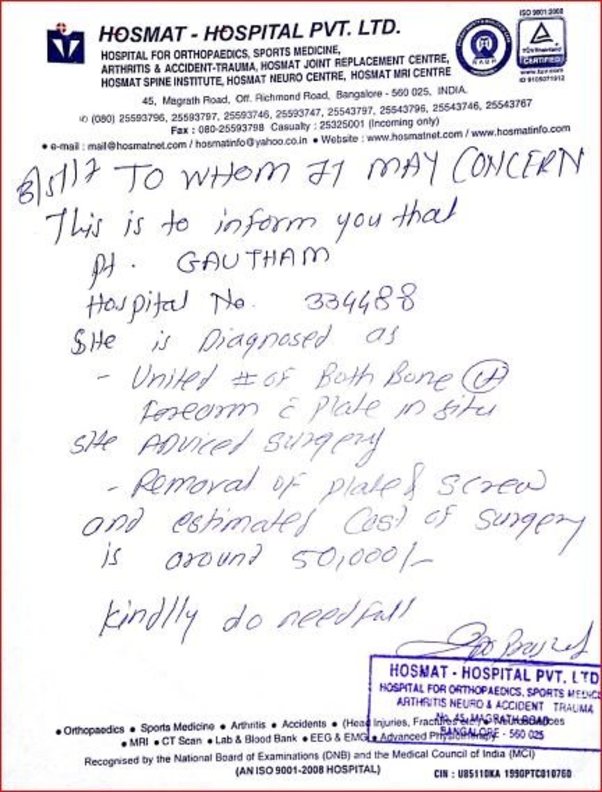 HOSMAT - HOSPITAL PVT. LTD.
HOSPITAL FOR ORTHOPAEDICS, SPORTS MEDICINE,
ARTHRITIS & ACCIDENT-TRAUMA, HOSMAT JOINT REPLACEMENT CENTRE,
HOSMAT SPINE INSTITUTE, HOSMAT NEURO CENTRE, HOSMAT MRI CENTRE
ISO 9001:2008
TÜVRheinland
CERTIFIED
www.tuv.com
ID 9105071912
45, Magrath Road, Off. Richmond Road, Bangalore - 560 025, INDIA.
(080) 25593796, 25593797, 25593746, 25593747, 25543797, 25543796, 25543746, 25543767
Fax : 080-25593798 Casualty : 25325001 (Incoming only)
• e-mail : mail@hosmatnet.com / hosmatinfo@yahoo.co.in • Website : www.hosmatnet.com / www.hosmatinfo.com
8/5/17 TO WHOM IT MAY CONCERN
This is to inform you that
pt. GAUTHAM
Hospital No. 334488
SHe is Diagnosed as
- United # of Both Bone
Forearm c̄ Plate in situ
sHe ADviced surgery
- Removal of plate & screw
and estimated Cost of surgery
is around 50,000/-
kindlly do needfull
HOSMAT - HOSPITAL PVT. LTD
HOSPITAL FOR ORTHOPAEDICS, SPORTS MEDICI
ARTHRITIS NEURO & ACCIDENT TRAUMA
No. 45, MAGRATH ROAD
BANGALORE - 560 025
• Orthopaedics • Sports Medicine • Arthritis • Accidents • (Head Injuries, Fractures etc.) • Neurosciences
• MRI • CT Scan • Lab & Blood Bank • EEG & EMG • Advanced Physiotherapy
Recognised by the National Board of Examinations (DNB) and the Medical Council of India (MCI)
(AN ISO 9001-2008 HOSPITAL)
CIN : U85110KA 1990PTC010760